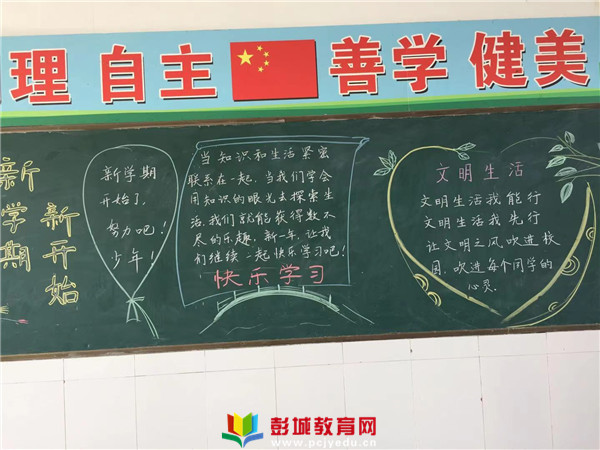 理 自主 善学 健美
新学期
新开始
新学期
开始了,
努力吧!
少年!
当知识和生活紧密
联系在一起,当我们学会
用知识的眼光去探索生
活,我们就能获得数不
尽的乐趣,新一年,让我
们继续一起快乐学习吧!
快乐学习
文明生活
文明生活我能行
文明生活我先行
让文明之风吹进校
园,吹进每个同学的
心灵.
彭城教育网
www.pcjyedu.cn